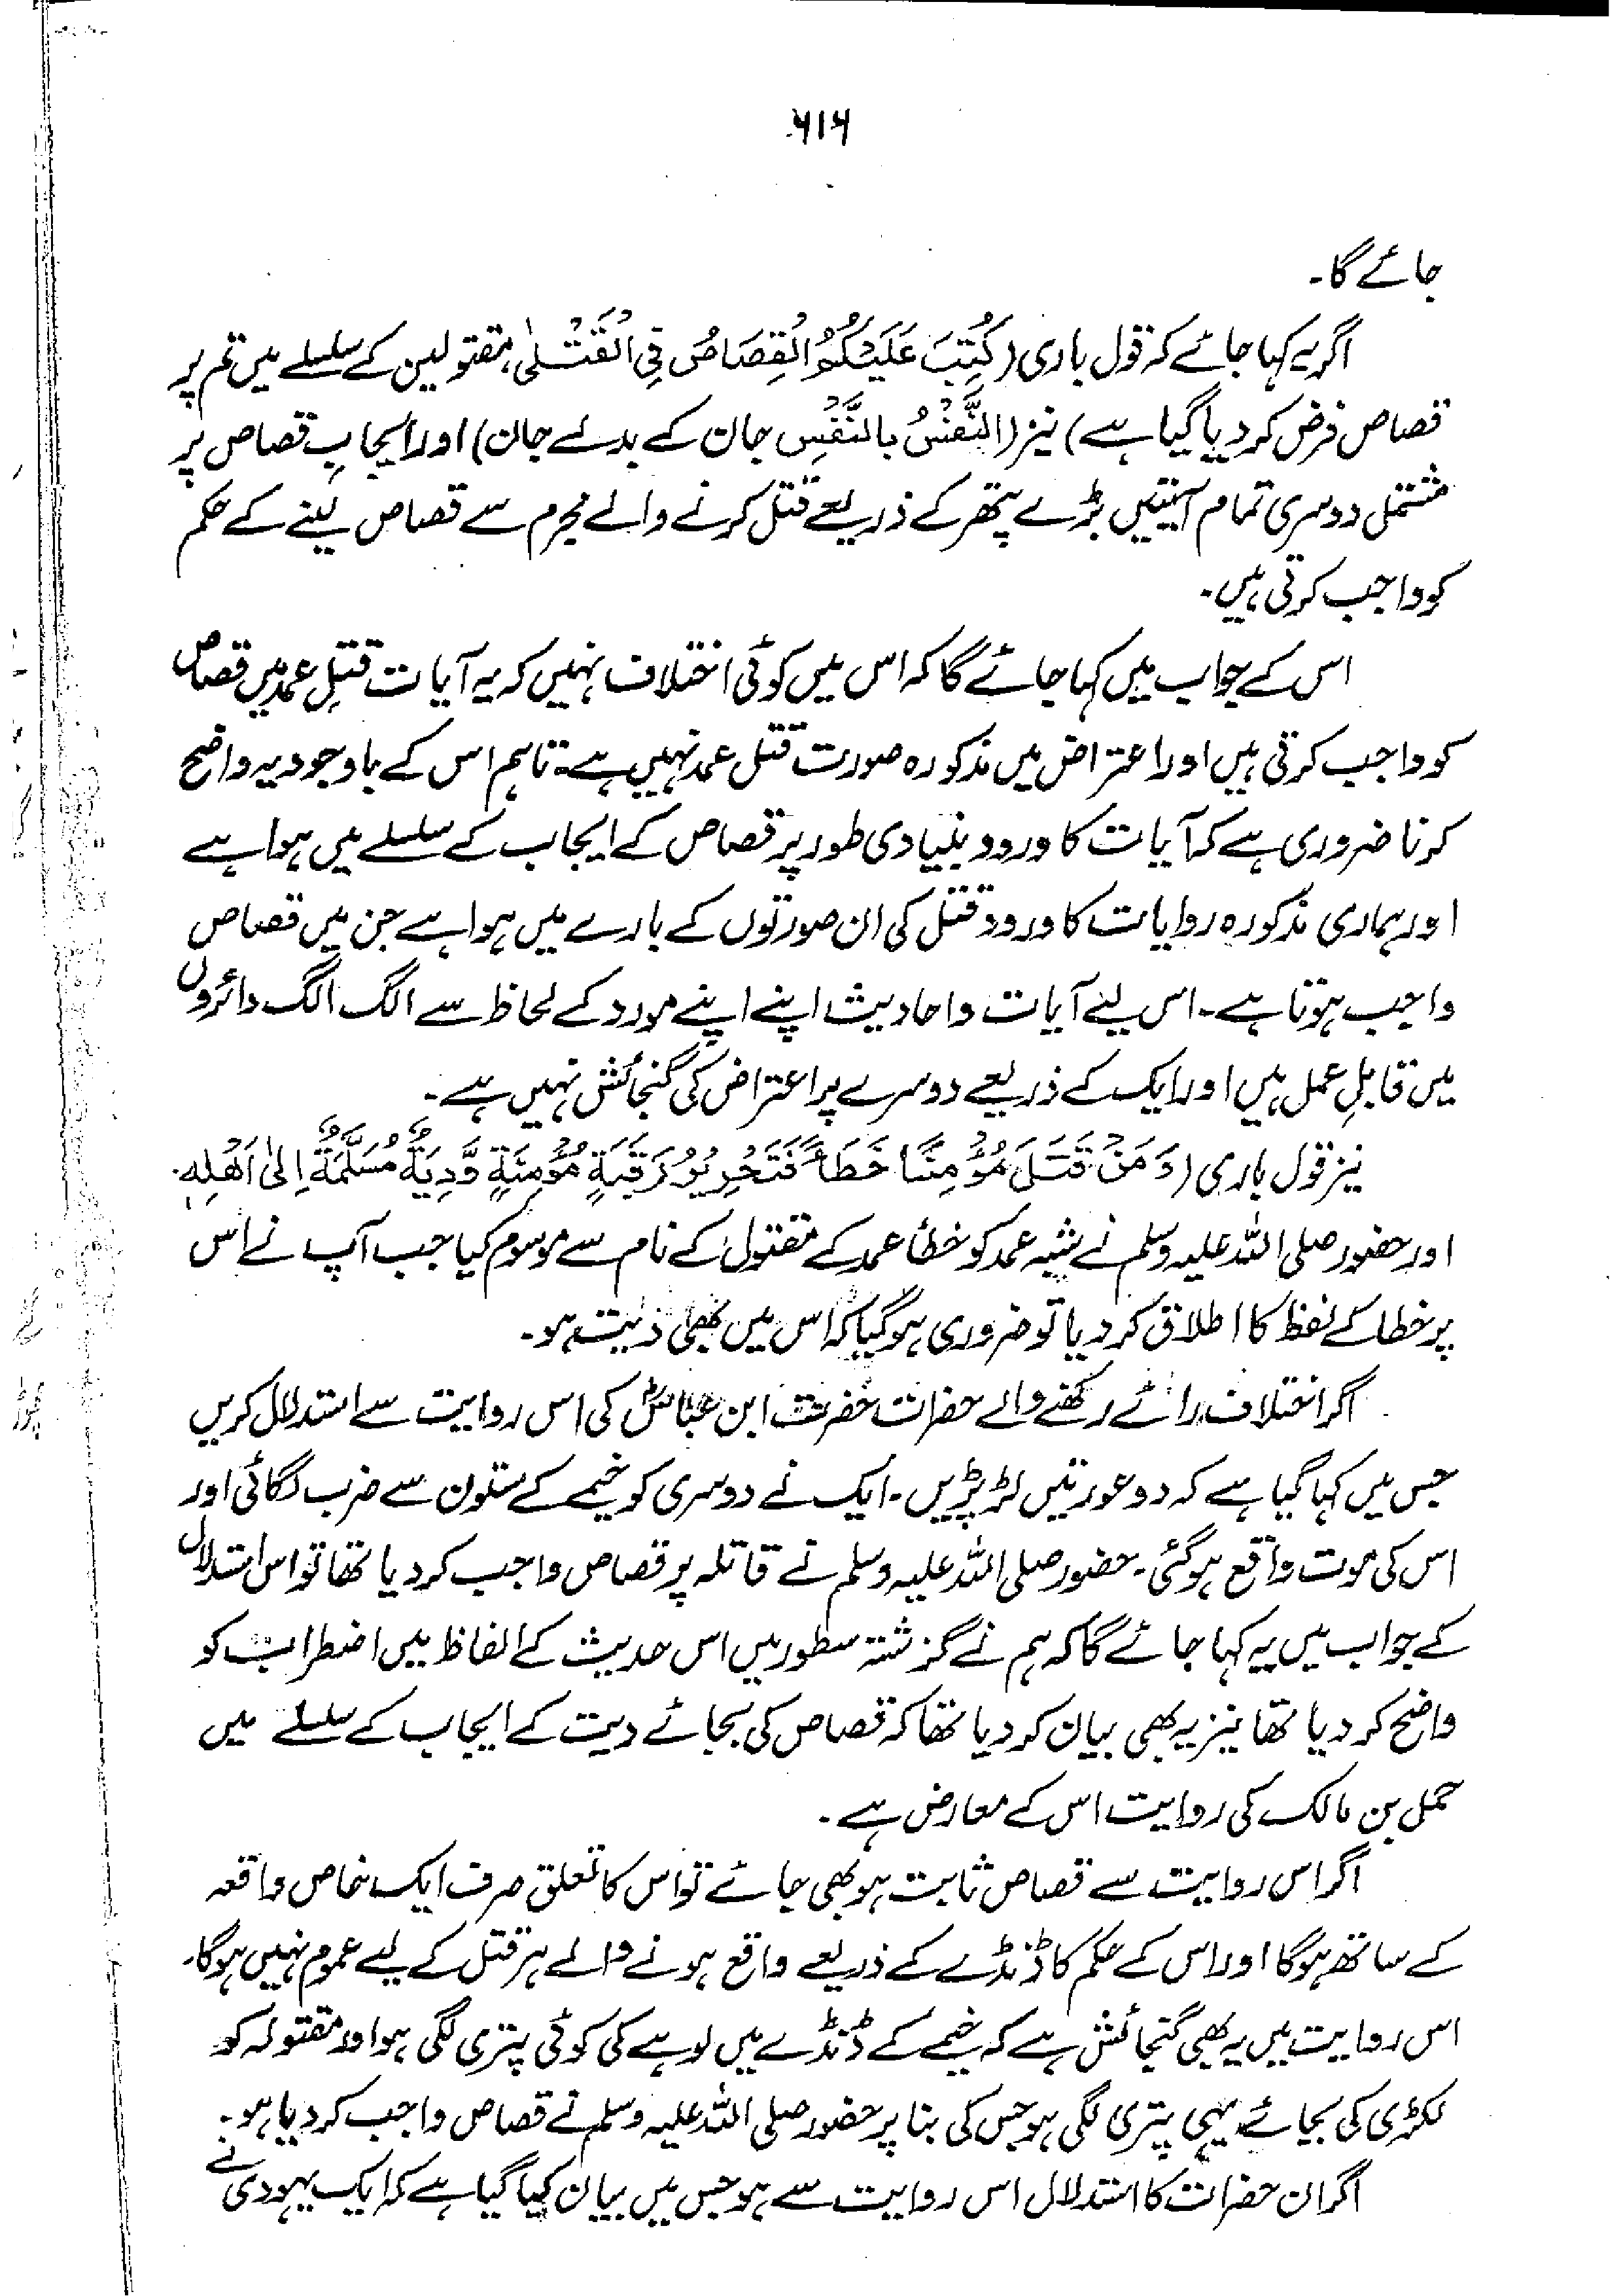 ۶۱۶
جائے گا۔
اگر یہ کہا جائے کہ قول باری (كُتِبَ عَلَيْكُمُ الْقِصَاصُ فِي الْقَتْلٰى، مقتولین کے سلسلے میں تم پر
قصاص فرض کر دیا گیا ہے) نیز (النَّفْسُ بِالنَّفْسِ جان کے بدلے جان) اور ایجابِ قصاص پر
مشتمل دوسری تمام آیتیں بڑے پتھر کے ذریعے قتل کرنے والے مجرم سے قصاص لینے کے حکم
کو واجب کرتی ہیں۔
اس کے جواب میں کہا جائے گا کہ اس میں کوئی اختلاف نہیں کہ یہ آیات قتلِ عمد میں قصاص
کو واجب کرتی ہیں اور اعتراض میں مذکورہ صورت قتل عمد نہیں ہے۔ تاہم اس کے باوجود یہ واضح
کرنا ضروری ہے کہ آیات کا ورود بنیادی طور پر قصاص کے ایجاب کے سلسلے میں ہوا ہے
اور ہماری مذکورہ روایات کا ورود قتل کی ان صورتوں کے بارے میں ہوا ہے جن میں قصاص
واجب ہوتا ہے۔ اس لیے آیات و احادیث اپنے اپنے مورد کے لحاظ سے الگ الگ دائروں
میں قابلِ عمل ہیں اور ایک کے ذریعے دوسرے پر اعتراض کی گنجائش نہیں ہے۔
نیز قول باری (وَمَنْ قَتَلَ مُؤْمِنًا خَطَأً فَتَحْرِيرُ رَقَبَةٍ مُؤْمِنَةٍ وَّدِيَةٌ مُسَلَّمَةٌ اِلٰى اَهْلِهٖ۔
اور حضور صلی اللہ علیہ وسلم نے شبہ عمد کو خطأ عمد کے مقتول کے نام سے موسوم کیا جب آپ نے اس
پر خطا کے لفظ کا اطلاق کر دیا تو ضروری ہو گیا کہ اس میں بھی دیت ہو۔
اگر اختلاف رائے رکھنے والے حضرات حضرت ابن عباسؓ کی اس روایت سے استدلال کریں
جس میں کہا گیا ہے کہ دو عورتیں لڑ پڑیں۔ ایک نے دوسری کو خیمے کے ستون سے ضرب لگائی اور
اس کی موت واقع ہو گئی۔ حضور صلی اللہ علیہ وسلم نے قاتلہ پر قصاص واجب کر دیا تھا تو اس استدلال
کے جواب میں یہ کہا جائے گا کہ ہم نے گزشتہ سطور میں اس حدیث کے الفاظ میں اضطراب کو
واضح کر دیا تھا نیز یہ بھی بیان کر دیا تھا کہ قصاص کی بجائے دیت کے ایجاب کے سلسلے میں
حمل بن مالک کی روایت اس کے معارض ہے۔
اگر اس روایت سے قصاص ثابت ہو بھی جائے تو اس کا تعلق صرف ایک خاص واقعہ
کے ساتھ ہو گا اور اس کے حکم کا ڈنڈے کے ذریعے واقع ہونے والے ہر قتل کے لیے عموم نہیں ہو گا۔
اس روایت میں یہ بھی گنجائش ہے کہ خیمے کے ڈنڈے میں لوہے کی کوئی پتری لگی ہو اور مقتولہ کو
لکڑی کی بجائے یہی پتری لگی ہو جس کی بنا پر حضور صلی اللہ علیہ وسلم نے قصاص واجب کر دیا ہو۔
اگر ان حضرات کا استدلال اس روایت سے ہو جس میں بیان کیا گیا ہے کہ ایک یہودی نے